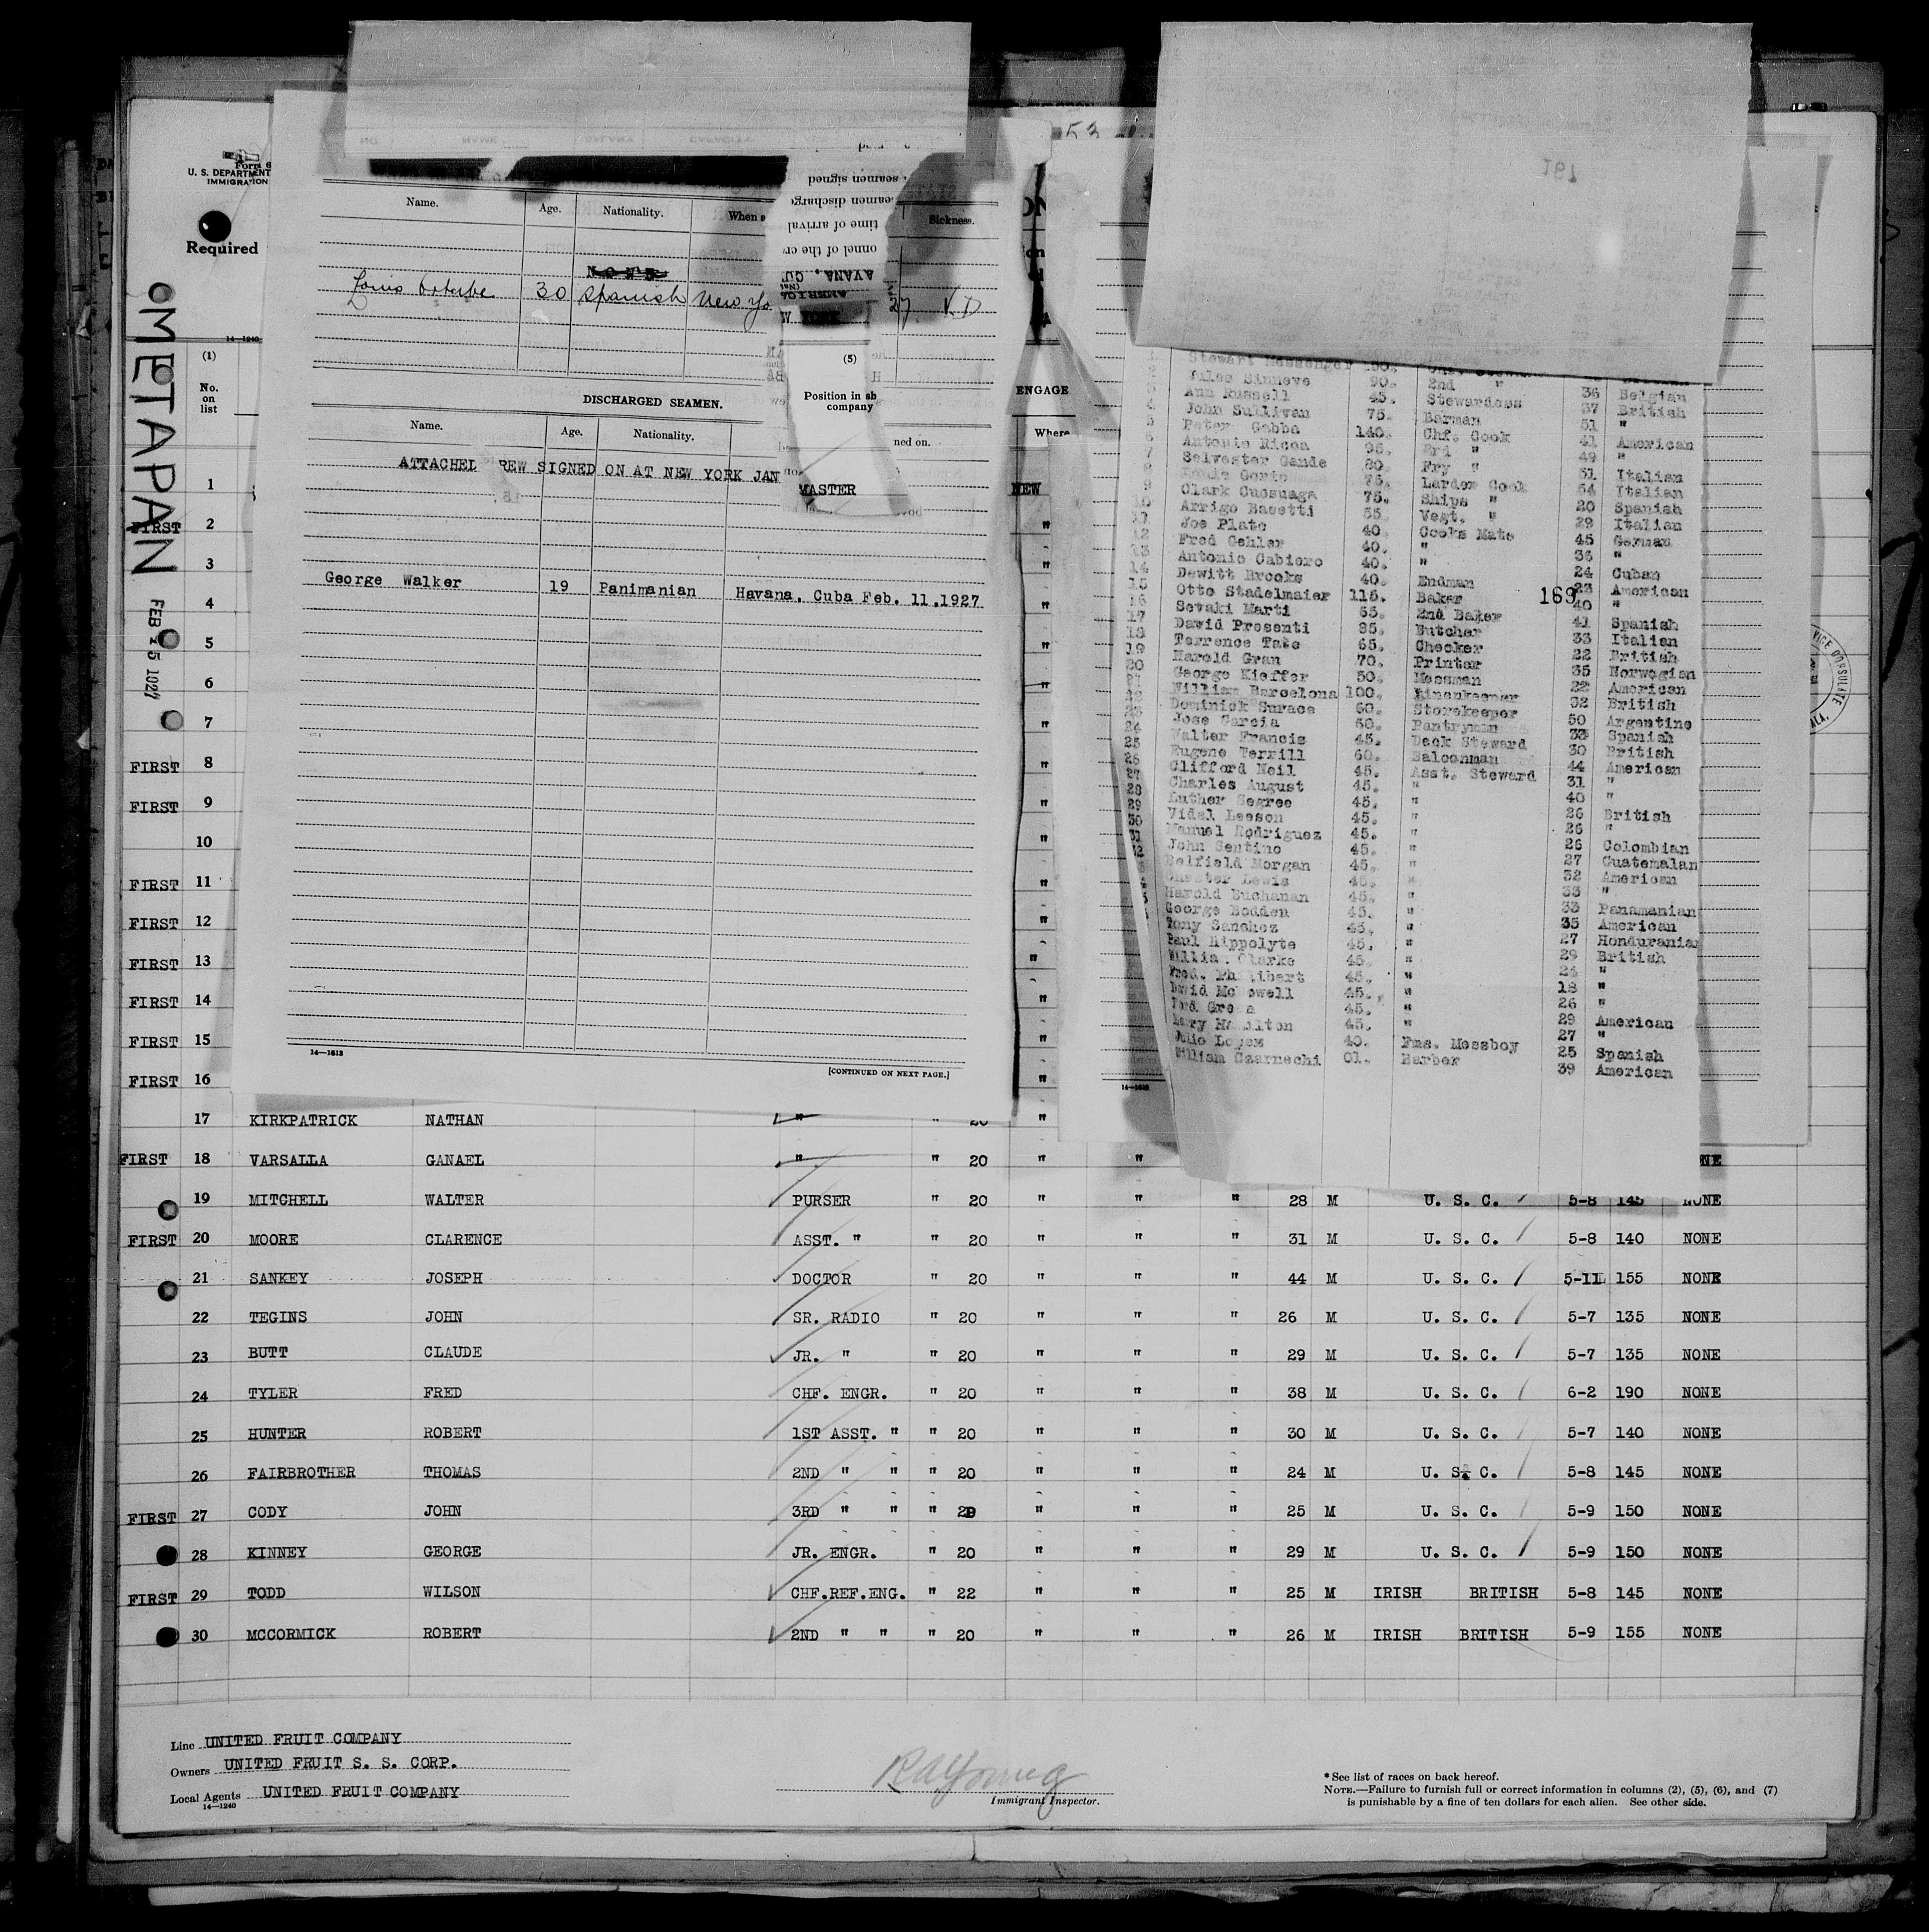 Form 6
U. S. DEPARTMENT
IMMIGRATION
Required
METAPAN
FEB 15 1927
14—1240
(1)
No.
on
list
Name. Age. Nationality. When Sickness.
30 Spanish New Yo 27 VD
seamen signed
seamen discharge
time of arrival
onnel of the cr
AVANA, CU
(5)
Position in
company
DISCHARGED SEAMEN.
Name. Age. Nationality. ned on.
REW SIGNED ON AT NEW YORK JAN
MASTER
George Walker 19 Panimanian Havana, Cuba Feb. 11,1927
14—1613
[CONTINUED ON NEXT PAGE.]
53
ENGAGE
Where
NEW
191
169
VICE CONSULATE
Stewart Messenger
Jules Sinneve 90. 2nd " 36 Belgian
Ann Russell 45. Stewardess 37 British
John Sullivan 75. Barman 51 "
Peter Gobba 140. Chf. Cook 41 American
Antonio Ricca 95. 3rd " 49 "
Selvester Gande 80. Fry " 31 Italian
75. Larder Cook 54 Italian
Clark Cuosuaga 75. Ships " 20 Spanish
Arrigo Basetti 55. Vegt. " 29 Italian
Joe Plate 40. Cooks Mate 45 German
Fred Gehler 40. " 36 "
Antonio Cabiero 40. " 24 Cuban
Dewitt Brooks 40. Endman 23 American
Otto Stadelmaier 115. Baker 40 "
Sevaki Marti 85. 2nd Baker 41 Spanish
David Presenti 85. Butcher 33 Italian
Terrence Tate 65. Checker 22 British
Harold Gran 70. Printer 35 Norwegian
George Kieffer 50. Messman 22 American
William Barcelona 100. Linenkeeper 32 British
Dominick Surace 60. Storekeeper 50 Argentine
Jose Garcia 50. Pantryman 33 Spanish
Walter Francis 45. Deck Steward 30 British
Eugene Terrill 60. Saloonman 44 American
Clifford Neil 45. Asst. Steward 31 "
Charles August 45. " 40 "
Luther Segree 45. " 26 British
Vidal Leeson 45. " 26 "
Manuel Rodriguez 45. " 26 Colombian
John Sentino 45. " 27 Guatemalan
Belfield Morgan 45. " 32 American
Chester Lewis 45. " 33 "
Harold Buchanan 45. " 33 Panamanian
George Bodden 45. " 35 American
Tony Sanchez 45. " 27 Honduranian
Paul Hippolyte 45. " 29 British
Clarke 45. " 24 "
45. " 18 "
45. " 26 "
45. " 29 American
45. " 27 "
Julio Lopez 40. Fms. Messboy 25 Spanish
William Czarnechi 01. Barber 39 American
1
FIRST 2
3
4
5
6
7
FIRST 8
FIRST 9
10
FIRST 11
FIRST 12
FIRST 13
FIRST 14
FIRST 15
FIRST 16
17 KIRKPATRICK NATHAN " " 20 "
FIRST 18 VARSALLA GANAEL " " 20 " "
19 MITCHELL WALTER PURSER " 20 " " " 28 M U. S. C. 5-8 145 NONE
FIRST 20 MOORE CLARENCE ASST. " " 20 " " " 31 M U. S. C. 5-8 140 NONE
21 SANKEY JOSEPH DOCTOR " 20 " " " 44 M U. S. C. 5-11 155 NONE
22 TEGINS JOHN SR. RADIO " 20 " " " 26 M U. S. C. 5-7 135 NONE
23 BUTT CLAUDE JR. " " 20 " " " 29 M U. S. C. 5-7 135 NONE
24 TYLER FRED CHF. ENGR. " 20 " " " 38 M U. S. C. 6-2 190 NONE
25 HUNTER ROBERT 1ST ASST. " " 20 " " " 30 M U. S. C. 5-7 140 NONE
26 FAIRBROTHER THOMAS 2ND " " " 20 " " " 24 M U. S. C. 5-8 145 NONE
FIRST 27 CODY JOHN 3RD " " " 20 " " " 25 M U. S. C. 5-9 150 NONE
28 KINNEY GEORGE JR. ENGR. " 20 " " " 29 M U. S. C. 5-9 150 NONE
FIRST 29 TODD WILSON CHF.REF.ENG. " 22 " " " 25 M IRISH BRITISH 5-8 145 NONE
30 MCCORMICK ROBERT 2ND " " " 20 " " " 26 M IRISH BRITISH 5-9 155 NONE
Line UNITED FRUIT COMPANY
Owners UNITED FRUIT S. S. CORP.
Local Agents UNITED FRUIT COMPANY
14—1240
RAYoung
Immigrant Inspector.
* See list of races on back hereof.
NOTE.—Failure to furnish full or correct information in columns (2), (5), (6), and (7)
is punishable by a fine of ten dollars for each alien. See other side.